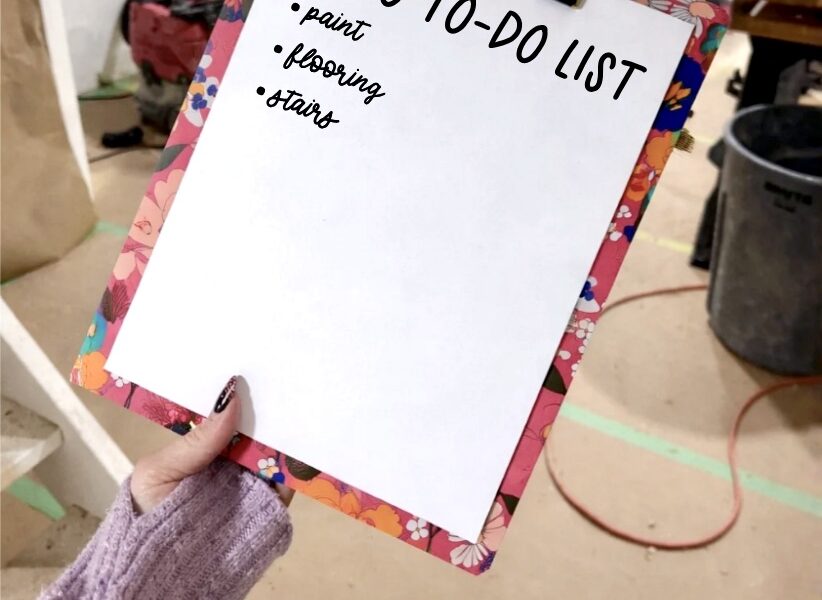 TO-DO LIST
• paint
• flooring
• stairs